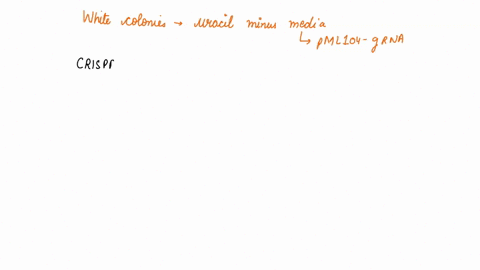 White colonies → uracil minus media
↳ pML104-gRNA
CRISPR